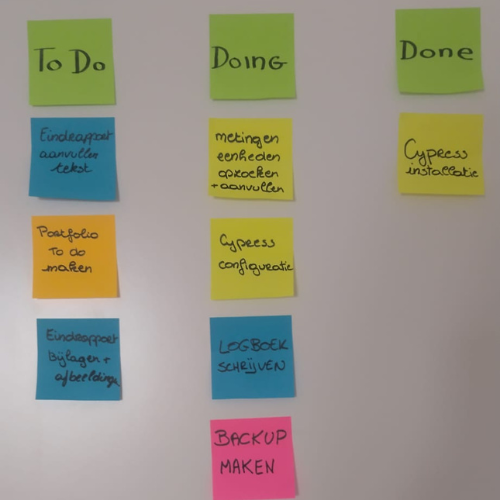 To Do
Eindeappoet
aanvullen
tekst
Portfolio
To do
maken
Eindeappoet
Bijlagen +
afbeeldinge
Doing
metingen
eenheden
opzoeken
+ aanvullen
Cypress
configuratie
LOGBOEK
SCHRIJVEN
BACKUP
MAKEN
Done
Cypress
installatie